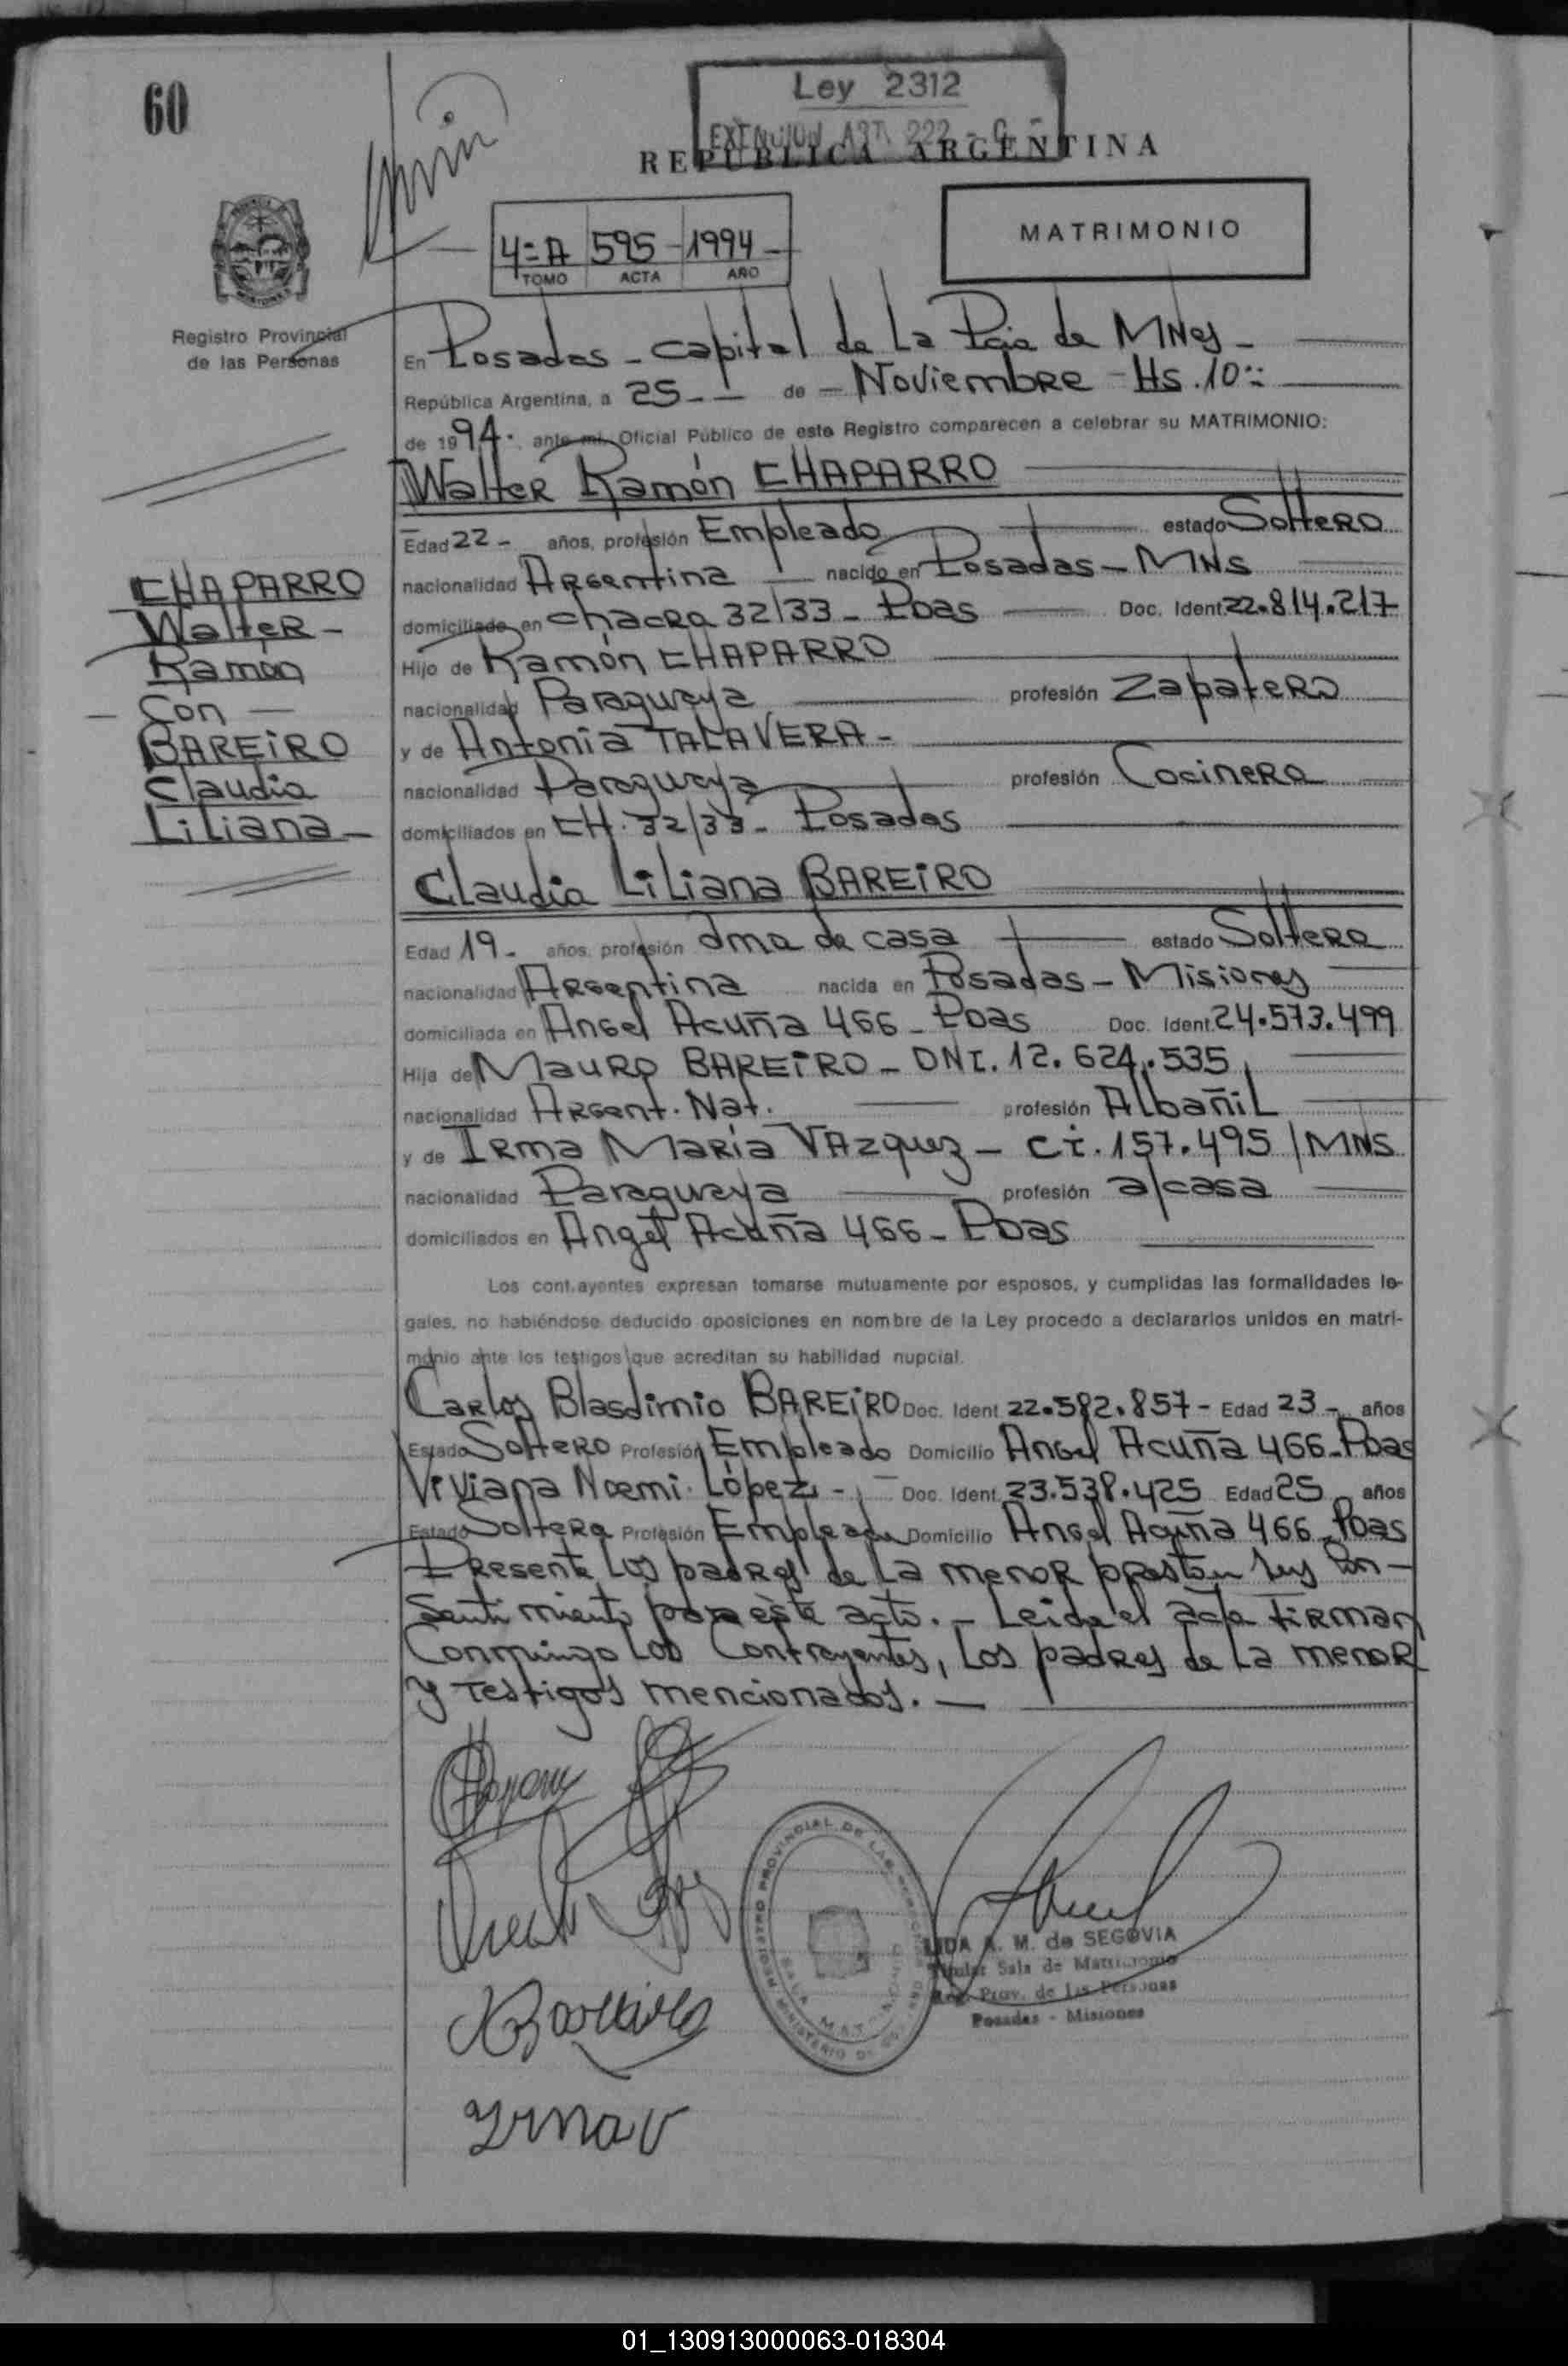 60
Ley 2312
EXENCION ART. 222 - C -
REPUBLICA ARGENTINA
4=A 595 - 1994 -
TOMO ACTA AÑO
MATRIMONIO
Registro Provincial
de las Personas
En Posadas - capital de La Pcia de MNes -
República Argentina, a 25 - - de - Noviembre - Hs. 10 =
de 1994. ante mí, Oficial Público de este Registro comparecen a celebrar su MATRIMONIO:
Walter Ramón CHAPARRO
Edad 22 - años, profesión Empleado estado Soltero
nacionalidad Argentina nacido en Posadas - MNS
domiciliado en chacra 32/33 - Pdas Doc. Ident. 22.814.217
Hijo de Ramón CHAPARRO
nacionalidad Paraguaya profesión Zapatero
y de Antonia TALAVERA -
nacionalidad Paraguaya profesión Cocinera
domiciliados en CH. 32/33 - Posadas
CHAPARRO
Walter -
Ramón
- Con -
BAREIRO
Claudia
Liliana -
Claudia Liliana BAREIRO
Edad 19 - años, profesión ama de casa estado Soltera
nacionalidad Argentina nacida en Posadas - Misiones
domiciliada en Angel Acuña 466 - Pdas Doc. Ident. 24.573.499
Hija de Mauro BAREIRO - DNI. 12.624.535
nacionalidad Argent. Nat. profesión Albañil
y de Irma María VAzquez - CI. 157.495 / MNS
nacionalidad Paraguaya profesión a/casa
domiciliados en Angel Acuña 466 - Pdas
Los contrayentes expresan tomarse mutuamente por esposos, y cumplidas las formalidades le-
gales, no habiéndose deducido oposiciones en nombre de la Ley procedo a declararlos unidos en matri-
monio ante los testigos que acreditan su habilidad nupcial.
Carlos Blasdimio BAREIRO Doc. Ident. 22.582.857 - Edad 23 - años
Estado Soltero Profesión Empleado Domicilio Angel Acuña 466 - Pdas
Viviana Noemi López - Doc. Ident. 23.538.425 Edad 25 años
Estado Soltera Profesión Empleada Domicilio Angel Acuña 466 - Pdas
Presente Los padres de La menor prestan sus Con-
sentimiento para este acto. - Leida el acta firman
Conmingo Los Contrayentes, Los padres de La menor
y Testigos mencionados. -
REGISTRO PROVINCIAL DE LAS PERSONAS
MINISTERIO DE GOBIERNO
SALA MATRIMONIO
LIDA A. M. de SEGOVIA
Titular Sala de Matrimonio
Reg. Prov. de las Personas
Posadas - Misiones
Bareiro
Irma V
01_130913000063-018304